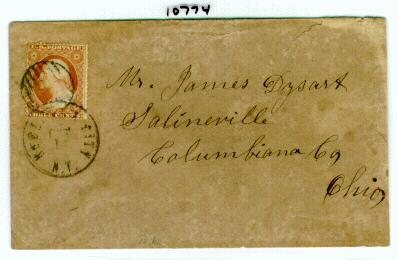 10774
U.S. POSTAGE
THREE CENTS
N.Y.
Mr. James Dysart
Salineville
Columbiana Co
Ohio